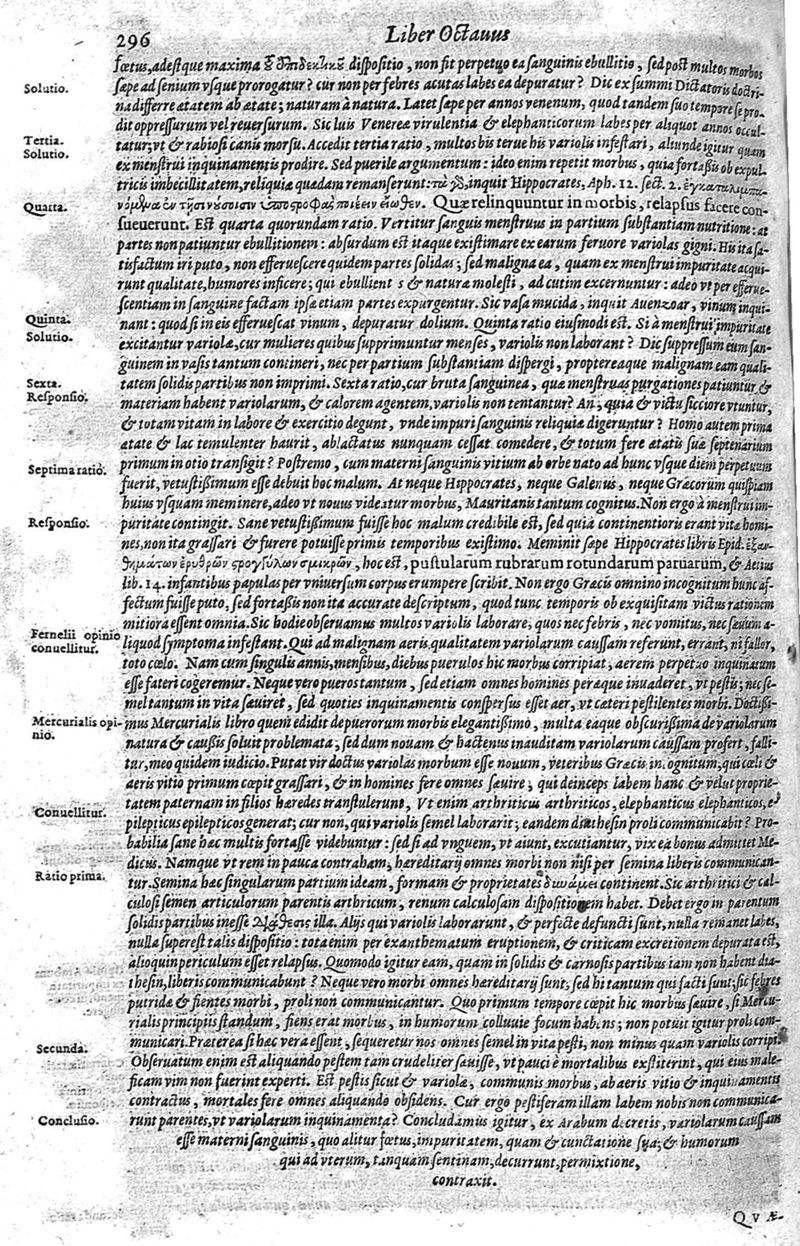 296
Liber Octauus
fœtus, adestque maxima dispositio, non fit perpetuo ea sanguinis ebullitio, sed post multos morbos
Solutio.
sæpe ad senium vsque prorogatur? cur non per febres acutas labes ea depuratur? Dic ex summi Dictatoris doctri-
na differre ætatem ab ætate; naturam à natura. Latet sæpe per annos venenum, quod tandem suo tempore se pro-
dit oppressurum vel reuersurum. Sic luis Venereæ virulentia & elephanticorum labes per aliquot annos occul-
Tertia.
Solutio.
tatur; vt & rabiosi canis morsu. Accedit tertia ratio, multos bis terue his variolis infestari, aliunde igitur quam
ex menstrui inquinamentis prodire. Sed puerile argumentum: ideo enim repetit morbus, quia fortassis ob expul-
tricis imbecillitatem, reliquiæ quædam remanserunt: τὰ γὰρ, inquit Hippocrates, Aph. 12. sect. 2. ἐγκαταλιμπα-
Quarta.
νόμενα ἐν τῇσι νούσοισιν ὑποστροφὰς ποιέειν εἴωθεν. Quæ relinquuntur in morbis, relapsus facere con-
sueuerunt. Est quarta quorundam ratio. Vertitur sanguis menstruus in partium substantiam nutritione: at
partes non patiuntur ebullitionem: absurdum est itaque existimare ex earum feruore variolas gigni. His ita sa-
tisfactum iri puto, non efferuescere quidem partes solidas; sed maligna ea, quam ex menstrui impuritate acqui-
runt qualitate, humores inficere; qui ebullient s & naturæ molesti, ad cutim excernuntur: adeo vt per efferue-
scentiam in sanguine factam ipsæ etiam partes expurgentur. Sic vasa mucida, inquit Auenzoar, vinum inqui-
Quinta.
Solutio.
nant: quod si in eis efferuescat vinum, depuratur dolium. Quinta ratio eiusmodi est. Si à menstrui impuritate
excitantur variolæ, cur mulieres quibus supprimuntur menses, variolis non laborant? Dic suppressum eum san-
guinem in vasis tantum contineri, nec per partium substantiam dispergi, propterea que malignam eam quali-
Sexta.
Responsio.
tatem solidis partibus non imprimi. Sexta ratio, cur bruta sanguinea, quæ menstruas purgationes patiuntur &
materiam habent variolarum, & calorem agentem, variolis non tentantur? An, quia & victu sicciore vtuntur,
& totam vitam in labore & exercitio degunt, vnde impuri sanguinis reliquiæ digeruntur? Homo autem prima
ætate & lac temulenter haurit, ablactatus nunquam cessat comedere, & totum fere ætatis suæ septenarium
Septima ratio.
primum in otio transigit? Postremo, cum materni sanguinis vitium ab orbe nato ad hunc vsque diem perpetuum
fuerit, vetustissimum esse debuit hoc malum. At neque Hippocrates, neque Galenus, neque Græcorum quispiam
huius vsquam meminere, adeo vt nouus videatur morbus, Mauritanis tantum cognitus. Non ergo à menstrui im-
Responsio.
puritate contingit. Sane vetustissimum fuisse hoc malum credibile est, sed quia continentioris erant vitæ homi-
nes, non ita grassari & furere potuisse primis temporibus existimo. Meminit sæpe Hippocrates libris Epid. ἐξαν-
θημάτων ἐρυθρῶν στρογγύλων σμικρῶν, hoc est, pustularum rubrarum rotundarum paruarum, & Aetius
lib. 14. infantibus papulas per vniuersum corpus erumpere scribit. Non ergo Græcis omnino incognitum hunc af-
fectum fuisse puto, sed fortassis non ita accurate descriptum, quod tunc temporis ob exquisitam victus rationem
mitiora essent omnia. Sic hodie obseruamus multos variolis laborare, quos nec febris, nec vomitus, nec sæuum a-
Fernelii opinio
conuellitur.
liquod symptoma infestant. Qui ad malignam aeris qualitatem variolarum caussam referunt, errant, ni fallor,
toto cœlo. Nam cum singulis annis, mensibus, diebus puerulos hic morbus corripiat, aerem perpetuo inquinatum
esse fateri cogeremur. Neque vero pueros tantum, sed etiam omnes homines peræque inuaderet, vt pestis; nec se-
mel tantum in vita sæuiret, sed quoties inquinamentis conspersus esset aer, vt cæteri pestilentes morbi. Doctissi-
Mercurialis opi-
nio.
mus Mercurialis libro quem edidit de puerorum morbis elegantissimo, multa eaque obscurissima de variolarum
natura & caussis soluit problemata; sed dum nouam & hactenus inauditam variolarum caussam profert, falli-
tur, meo quidem iudicio. Putat vir doctus variolas morbum esse nouum, veteribus Græcis incognitum, qui cœli &
aeris vitio primum cœpit grassari, & in homines fere omnes sæuire; qui deinceps labem hanc & velut proprie-
tatem paternam in filios hæredes transtulerunt, Vt enim arthriticus arthriticos, elephanticus elephanticos, e-
Conuellitur.
pilepticus epilepticos generat; cur non, qui variolis semel laborarit; eandem diathesin proli communicabit? Pro-
babilia sane hæc multis fortasse videbuntur: sed si ad vnguem, vt aiunt, excutiantur, vix ea bonus admittet Me-
dicus. Namque vt rem in pauca contraham, hæreditarij omnes morbi non nisi per semina liberis communican-
Ratio prima.
tur. Semina hæc singularum partium ideam, formam & proprietates δυνάμει continent. Sic arthritici & cal-
culosi semen articulorum parentis arthricum, renum calculosam dispositionem habet. Debet ergo in parentum
solidis partibus inesse διάθεσις illa. Alijs qui variolis laborarunt, & perfecte defuncti sunt, nulla remanet labes,
nulla superest talis dispositio: tota enim per exanthematum eruptionem, & criticam excretionem depurata est,
alioquin periculum esset relapsus. Quomodo igitur eam, quam in solidis & carnosis partibus iam non habent dia-
thesin, liberis communicabunt? Neque vero morbi omnes hæreditarij sunt; sed hi tantum qui facti sunt; sic febres
putridæ & fientes morbi, proli non communicantur. Quo primum tempore cœpit hic morbus sæuire, si Mercu-
rialis principiis standum, fiens erat morbus, in humorum colluuie focum habens; non potuit igitur proli com-
Secunda.
municari. Præterea si hæc vera essent, sequeretur nos omnes semel in vita pesti, non minus quam variolis corripi.
Obseruatum enim est aliquando pestem tam crudeliter sæuisse, vt pauci è mortalibus exstiterint, qui eius male-
ficam vim non fuerint experti. Est pestis sicut & variolæ, communis morbus, ab aeris vitio & inquinamentis
contractus, mortales fere omnes aliquando obsidens. Cur ergo pestiferam illam labem nobis non communica-
Conclusio.
runt parentes, vt variolarum inquinamenta? Concludamus igitur, ex Arabum decretis, variolarum caussam
esse materni sanguinis, quo alitur fœtus, impuritatem, quam & cunctatione sua; & humorum
qui ad vterum, tanquam sentinam, decurrunt, permixtione,
contraxit.
QVÆ-